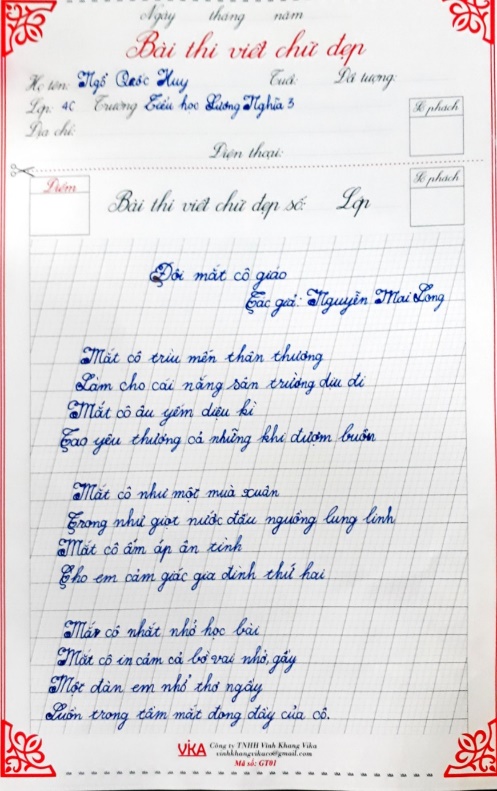 Ngày tháng năm
Bài thi viết chữ đẹp
Họ tên: Ngô Quốc Huy Tuổi: Đối tượng:
Lớp: 4C Trường Tiểu học Lương Nghĩa 3
Số phách
Địa chỉ:
Điện thoại:
Điểm
Số phách
Bài thi viết chữ đẹp số: Lớp
Đôi mắt cô giáo
Tác giả: Nguyễn Mai Long
Mắt cô trìu mến thân thương
Làm cho cái nắng sân trường dịu đi
Mắt cô âu yếm diệu kì
Tạo yêu thương cả những khi đượm buồn
Mắt cô như một mùa xuân
Trong như giọt nước đầu nguồng lung linh
Mắt cô ấm áp ân tình
Cho em cảm giác gia đình thứ hai
Mắt cô nhất nhỏ học bài
Mắt cô in cảm cả bờ vai nhỏ, gầy
Một đàn em nhỏ thơ ngây
Luôn trong tầm mắt đong đầy của cô.
VIKA Công ty TNHH Vinh Khang Vika
vinhkhangvikaco@gmail.com
Mã số: GT01